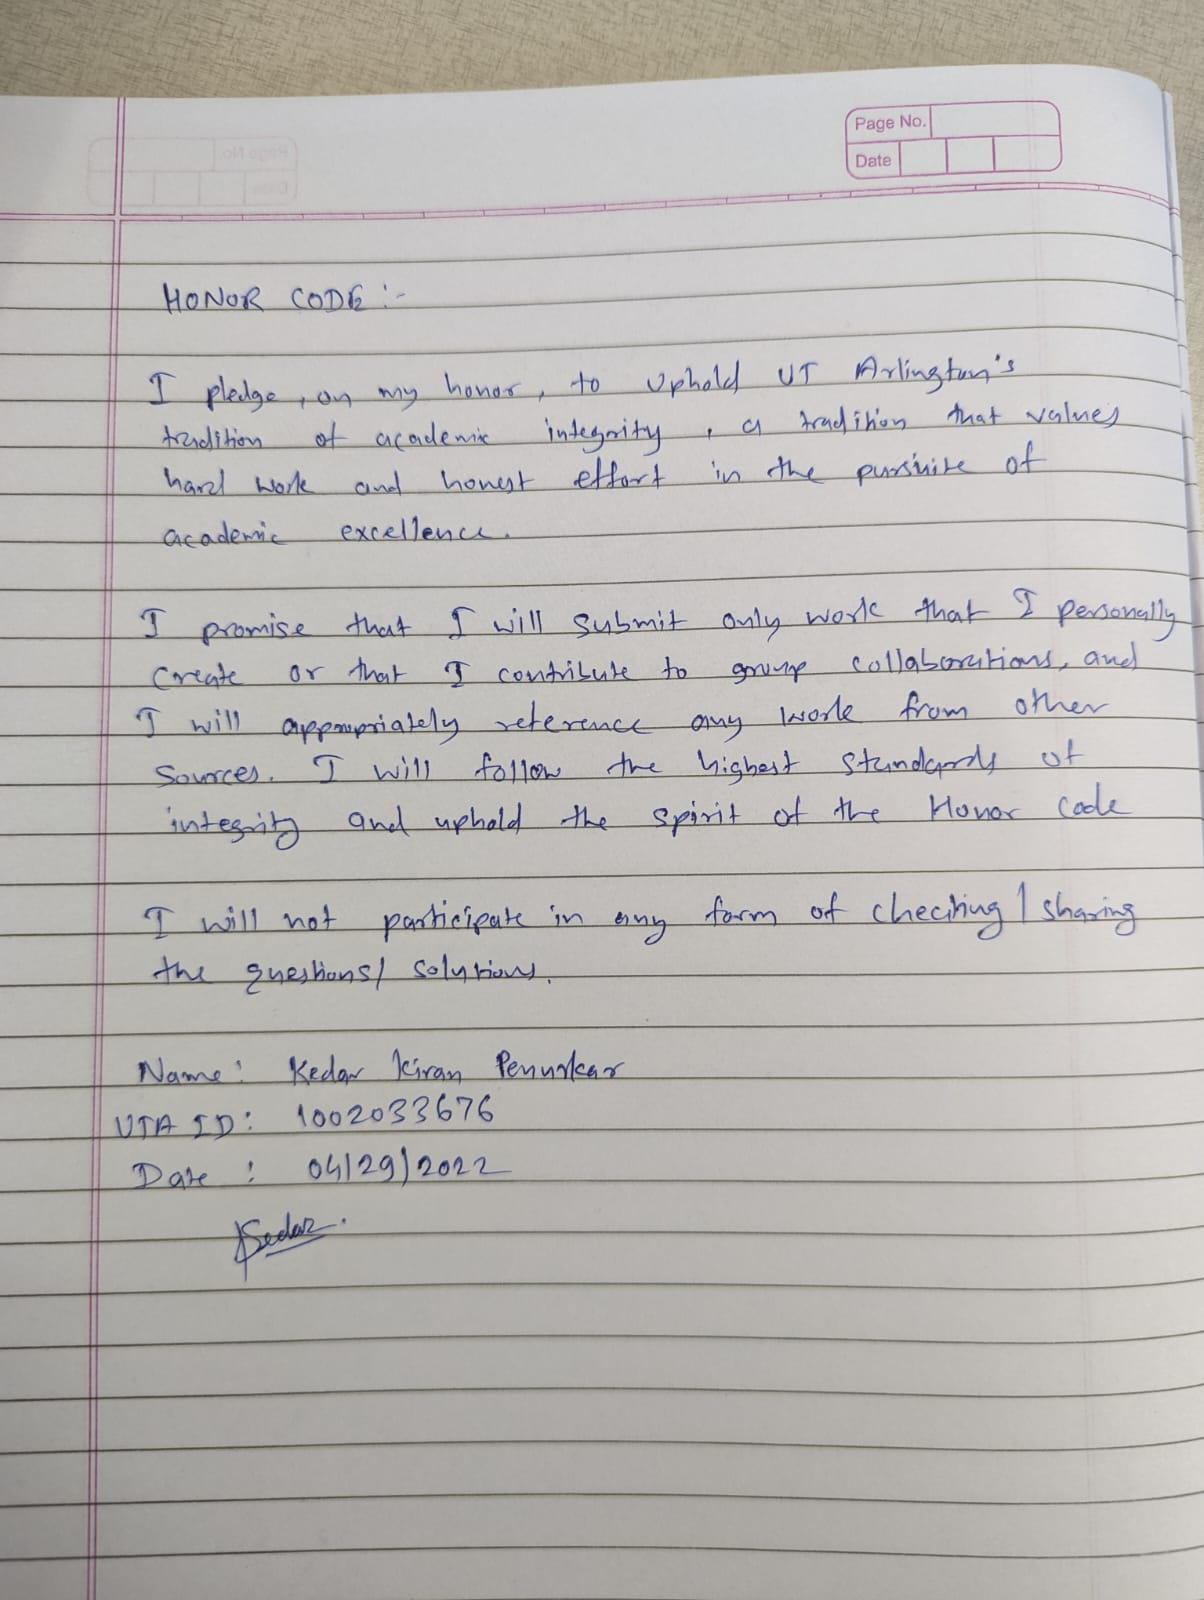 Page No.
Date
HONOR CODE :-
I pledge, on my honor, to uphold UT Arlington's
tradition of academic integrity, a tradition that values
hard work and honest effort in the pursuite of
academic excellence.
I promise that I will submit only work that I personally
create or that I contribute to group collaborations, and
I will appropriately reference any work from other
sources. I will follow the highest standards of
integrity and uphold the spirit of the Honor code
I will not participate in any form of cheating / sharing
the questions/ solutions.
Name: Kedar Kiran Penurkar
UTA ID: 1002033676
Date : 04/29/2022
Kedar.